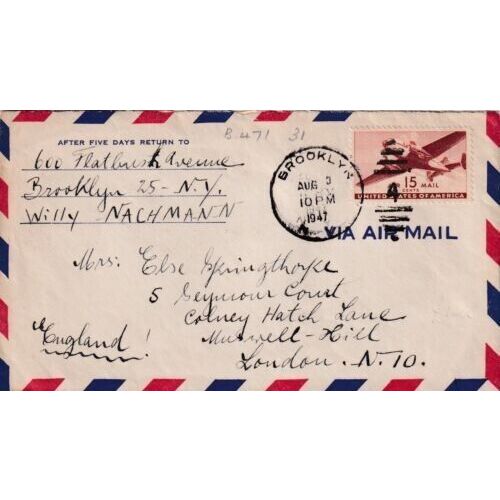 B.471 31
AFTER FIVE DAYS RETURN TO
600 Flatbush Avenue
Brooklyn 25-N.Y.
Willy NACHMANN
BROOKLYN
AUG 3
10 PM
1947
15 MAIL
CENTS
UNITED STATES OF AMERICA
VIA AIR MAIL
Mrs: Else Springthorpe
5 Seymour Court
Colney Hatch Lane
England!
Muswell-Hill
London. N. 10.